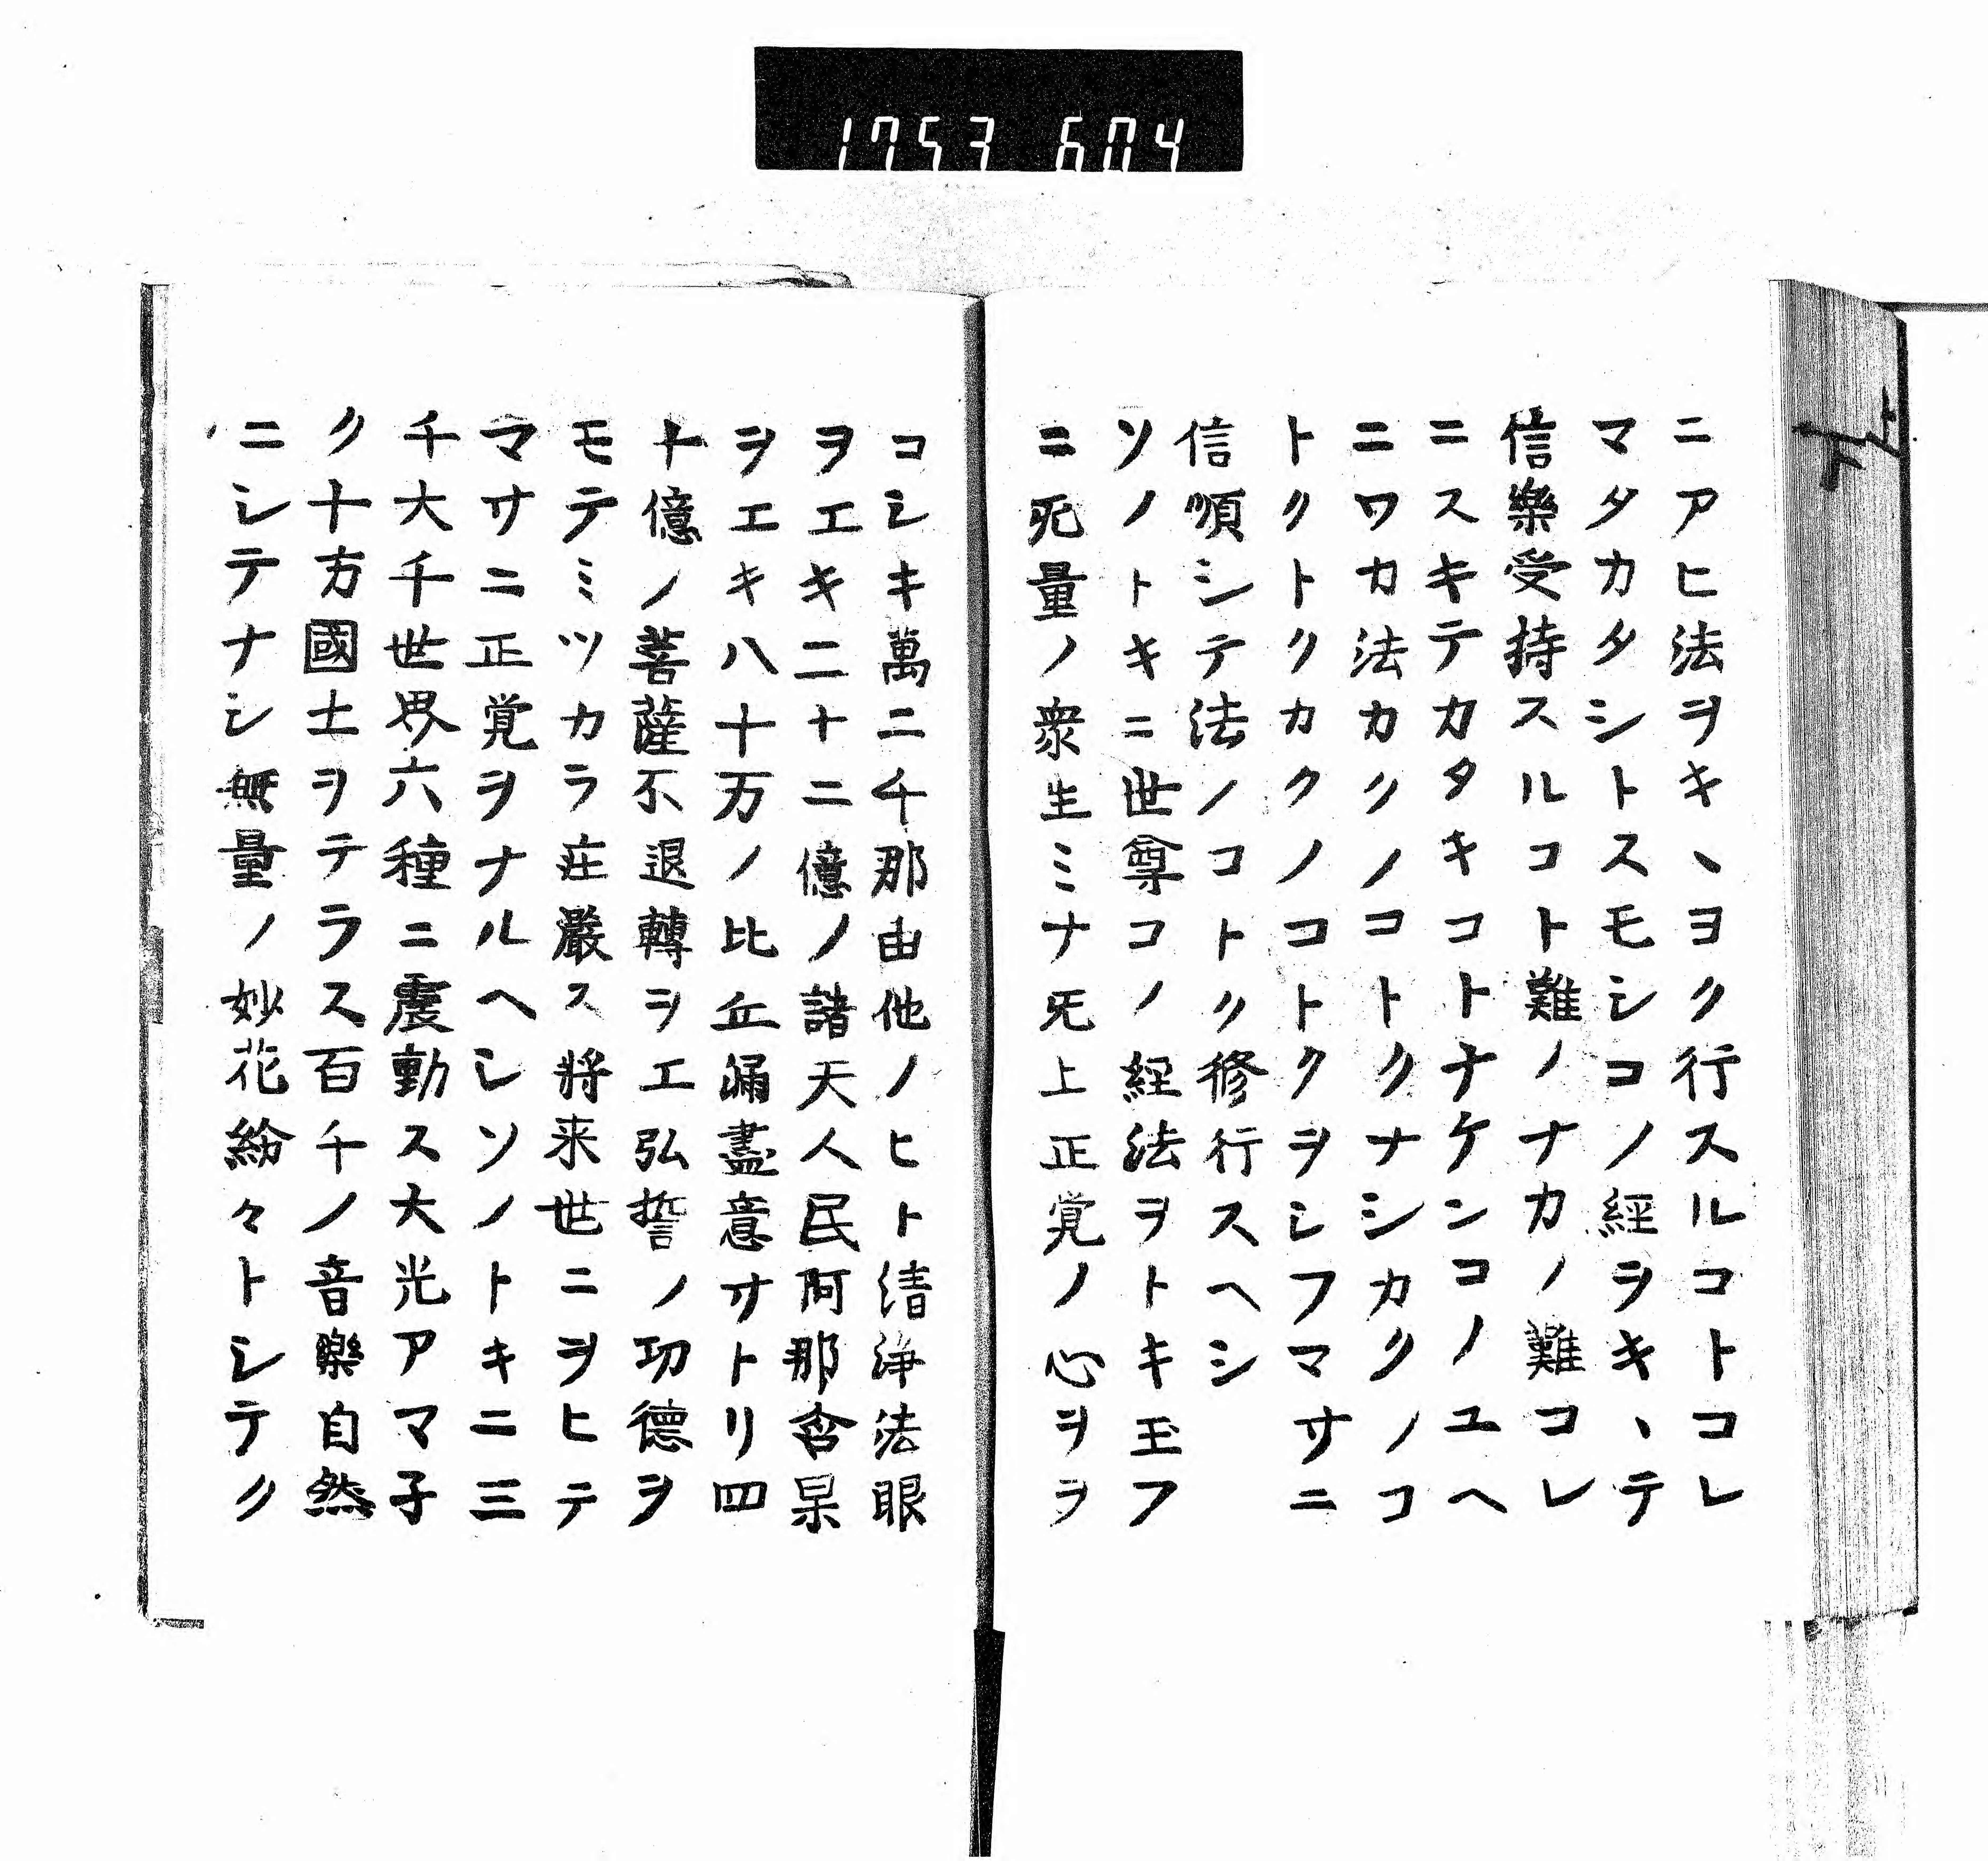 1753 604
ニアヒ法ヲキヽヨク行スルコトコレ
マタカタシトスモシコノ経ヲキヽテ
信樂受持スルコト難ノナカノ難コレ
ニスキテカタキコトナケンコノユヘ
ニワカ法カクノコトクナシカクノコ
トクトクカクノコトクヲシフマサニ
信順シテ法ノコトク修行スヘシ
ソノトキニ世尊コノ経法ヲトキ玉フ
ニ无量ノ衆生ミナ无上正覚ノ心ヲヲ
コシキ萬二千那由他ノヒト清浄法眼
ヲエキ二十二億ノ諸天人民阿那含果
ヲエキ八十万ノ比丘漏盡意サトリ四
十億ノ菩薩不退轉ヲエ弘誓ノ功德ヲ
モテミツカラ莊嚴ス将来世ニヲヒテ
マサニ正覚ヲナルヘシソノトキニ三
千大千世界六種ニ震動ス大光アマ子
ク十方國土ヲテラス百千ノ音樂自然
ニシテナシ無量ノ妙花紛々トシテク